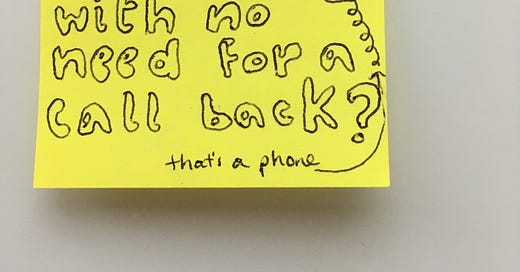 with no
need for a
call back?
that's a phone